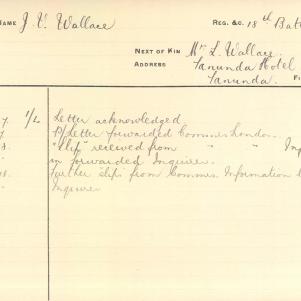 NAME J. V. Wallace REG. &C. 18th Batt
NEXT OF KIN Mr L. Wallace
ADDRESS Tanunda Hotel
Tanunda.
7. Letter acknowledged
7 Letter forwarded Commrs London.
8. "Slip" received from " " Inf
" in forwarded Inquirer.
18. Further "slip" from Commrs. Information
" Inquirer